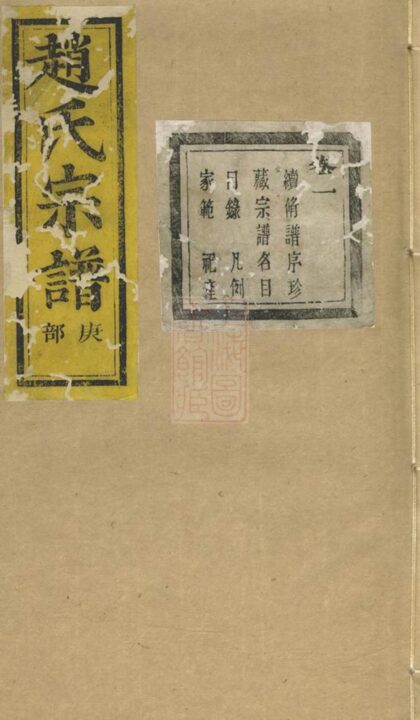 趙氏宗譜
庚部
卷一
續脩譜序珍
藏宗譜名目
目錄 凡例
家範 祀產